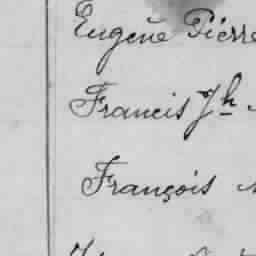 Eugène Pierre
Francis Jh
François